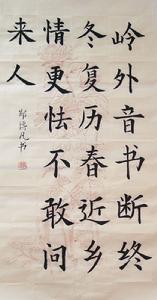 岭外音书断终
冬复历春近乡
情更怯不敢问
来人
郑德凡书